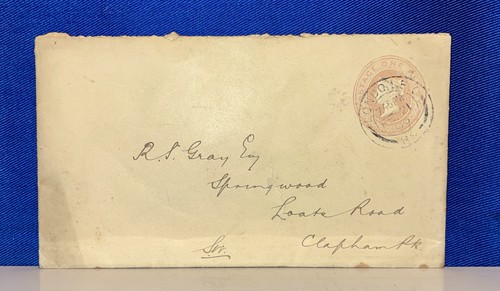 POSTAGE ONE
LONDON.E.C
R. S. Gray Esq
Springwood
Loats Road
S.W. Clapham Pk